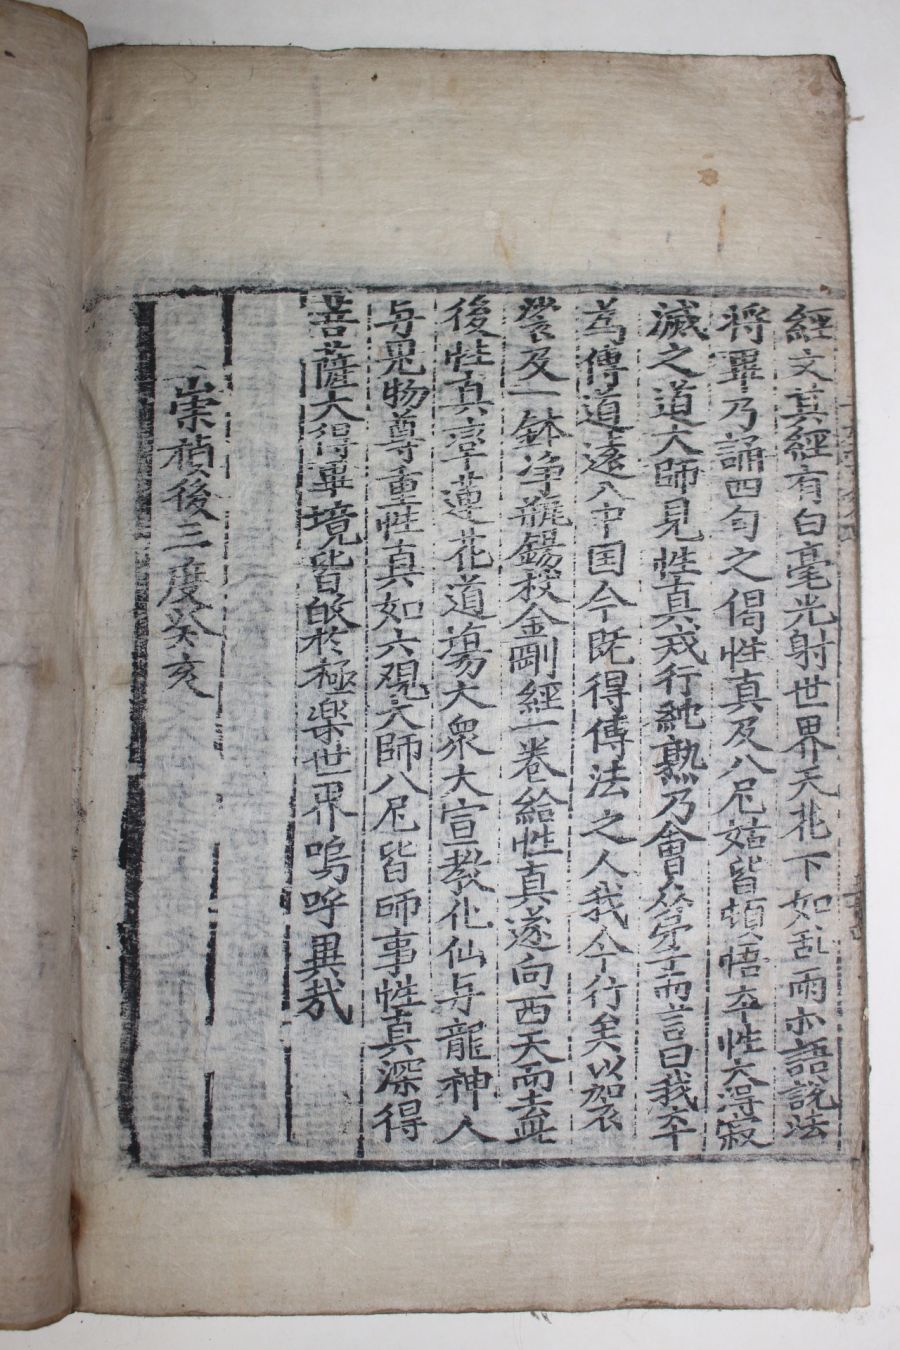 經文其經有白毫光射世界天花下如乱雨亦語說法
將畢乃誦四句之偈性真及八尼姑皆頓悟夲性大得寂
滅之道大師見性真戒行純熟乃會衆弟子而言曰我夲
為傳道遠入中国今旣得傳法之人我今行矣以袈衣
裟及一鉢净甁錫杖金剛經一卷給性真遂向西天而去此
後性真率蓮花道塲大衆大宣教化仙与龍神人
与鬼物尊重性真如六觀大師八尼皆師事性真深得
菩薩大得畢境皆皈於極樂世界嗚呼異哉
崇禎後三度癸亥